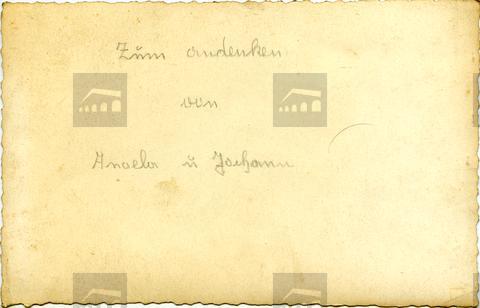 Zum andenken
von
Angela u Johann